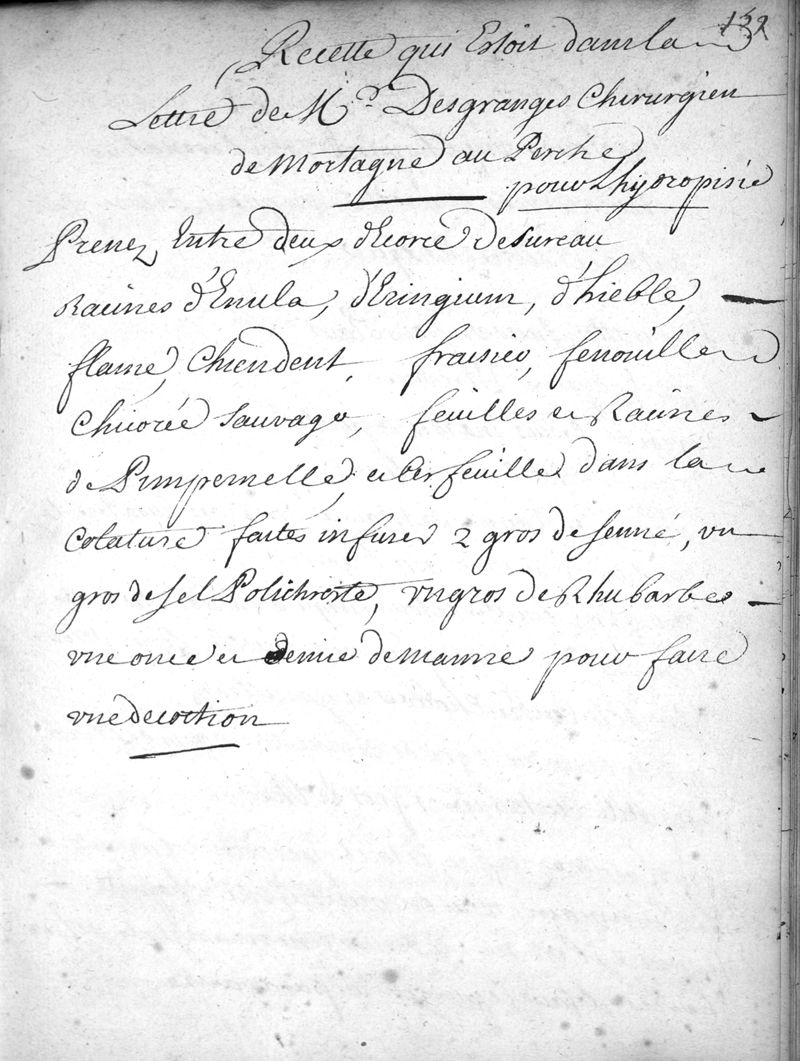 132
Recette qui Estoit dans la
Lettre de Mr. Desgranges Chirurgien
de Mortagne au Perche
pour Lhydropisie
Prenez Entre deux d'Ecorce de sureau
Racines d'Enula, d'Eringium, d'hieble,
flame, Chiendent, fraisier, fenouille
Chicorée sauvage, feuilles et Racines
de Pimpernelle, et Cerfeuille dans la
Colature faites infuser 2 gros de senné, un
gros de sel Polichreste, un gros de Rhubarbe
une once et demie de manne pour faire
une decoction